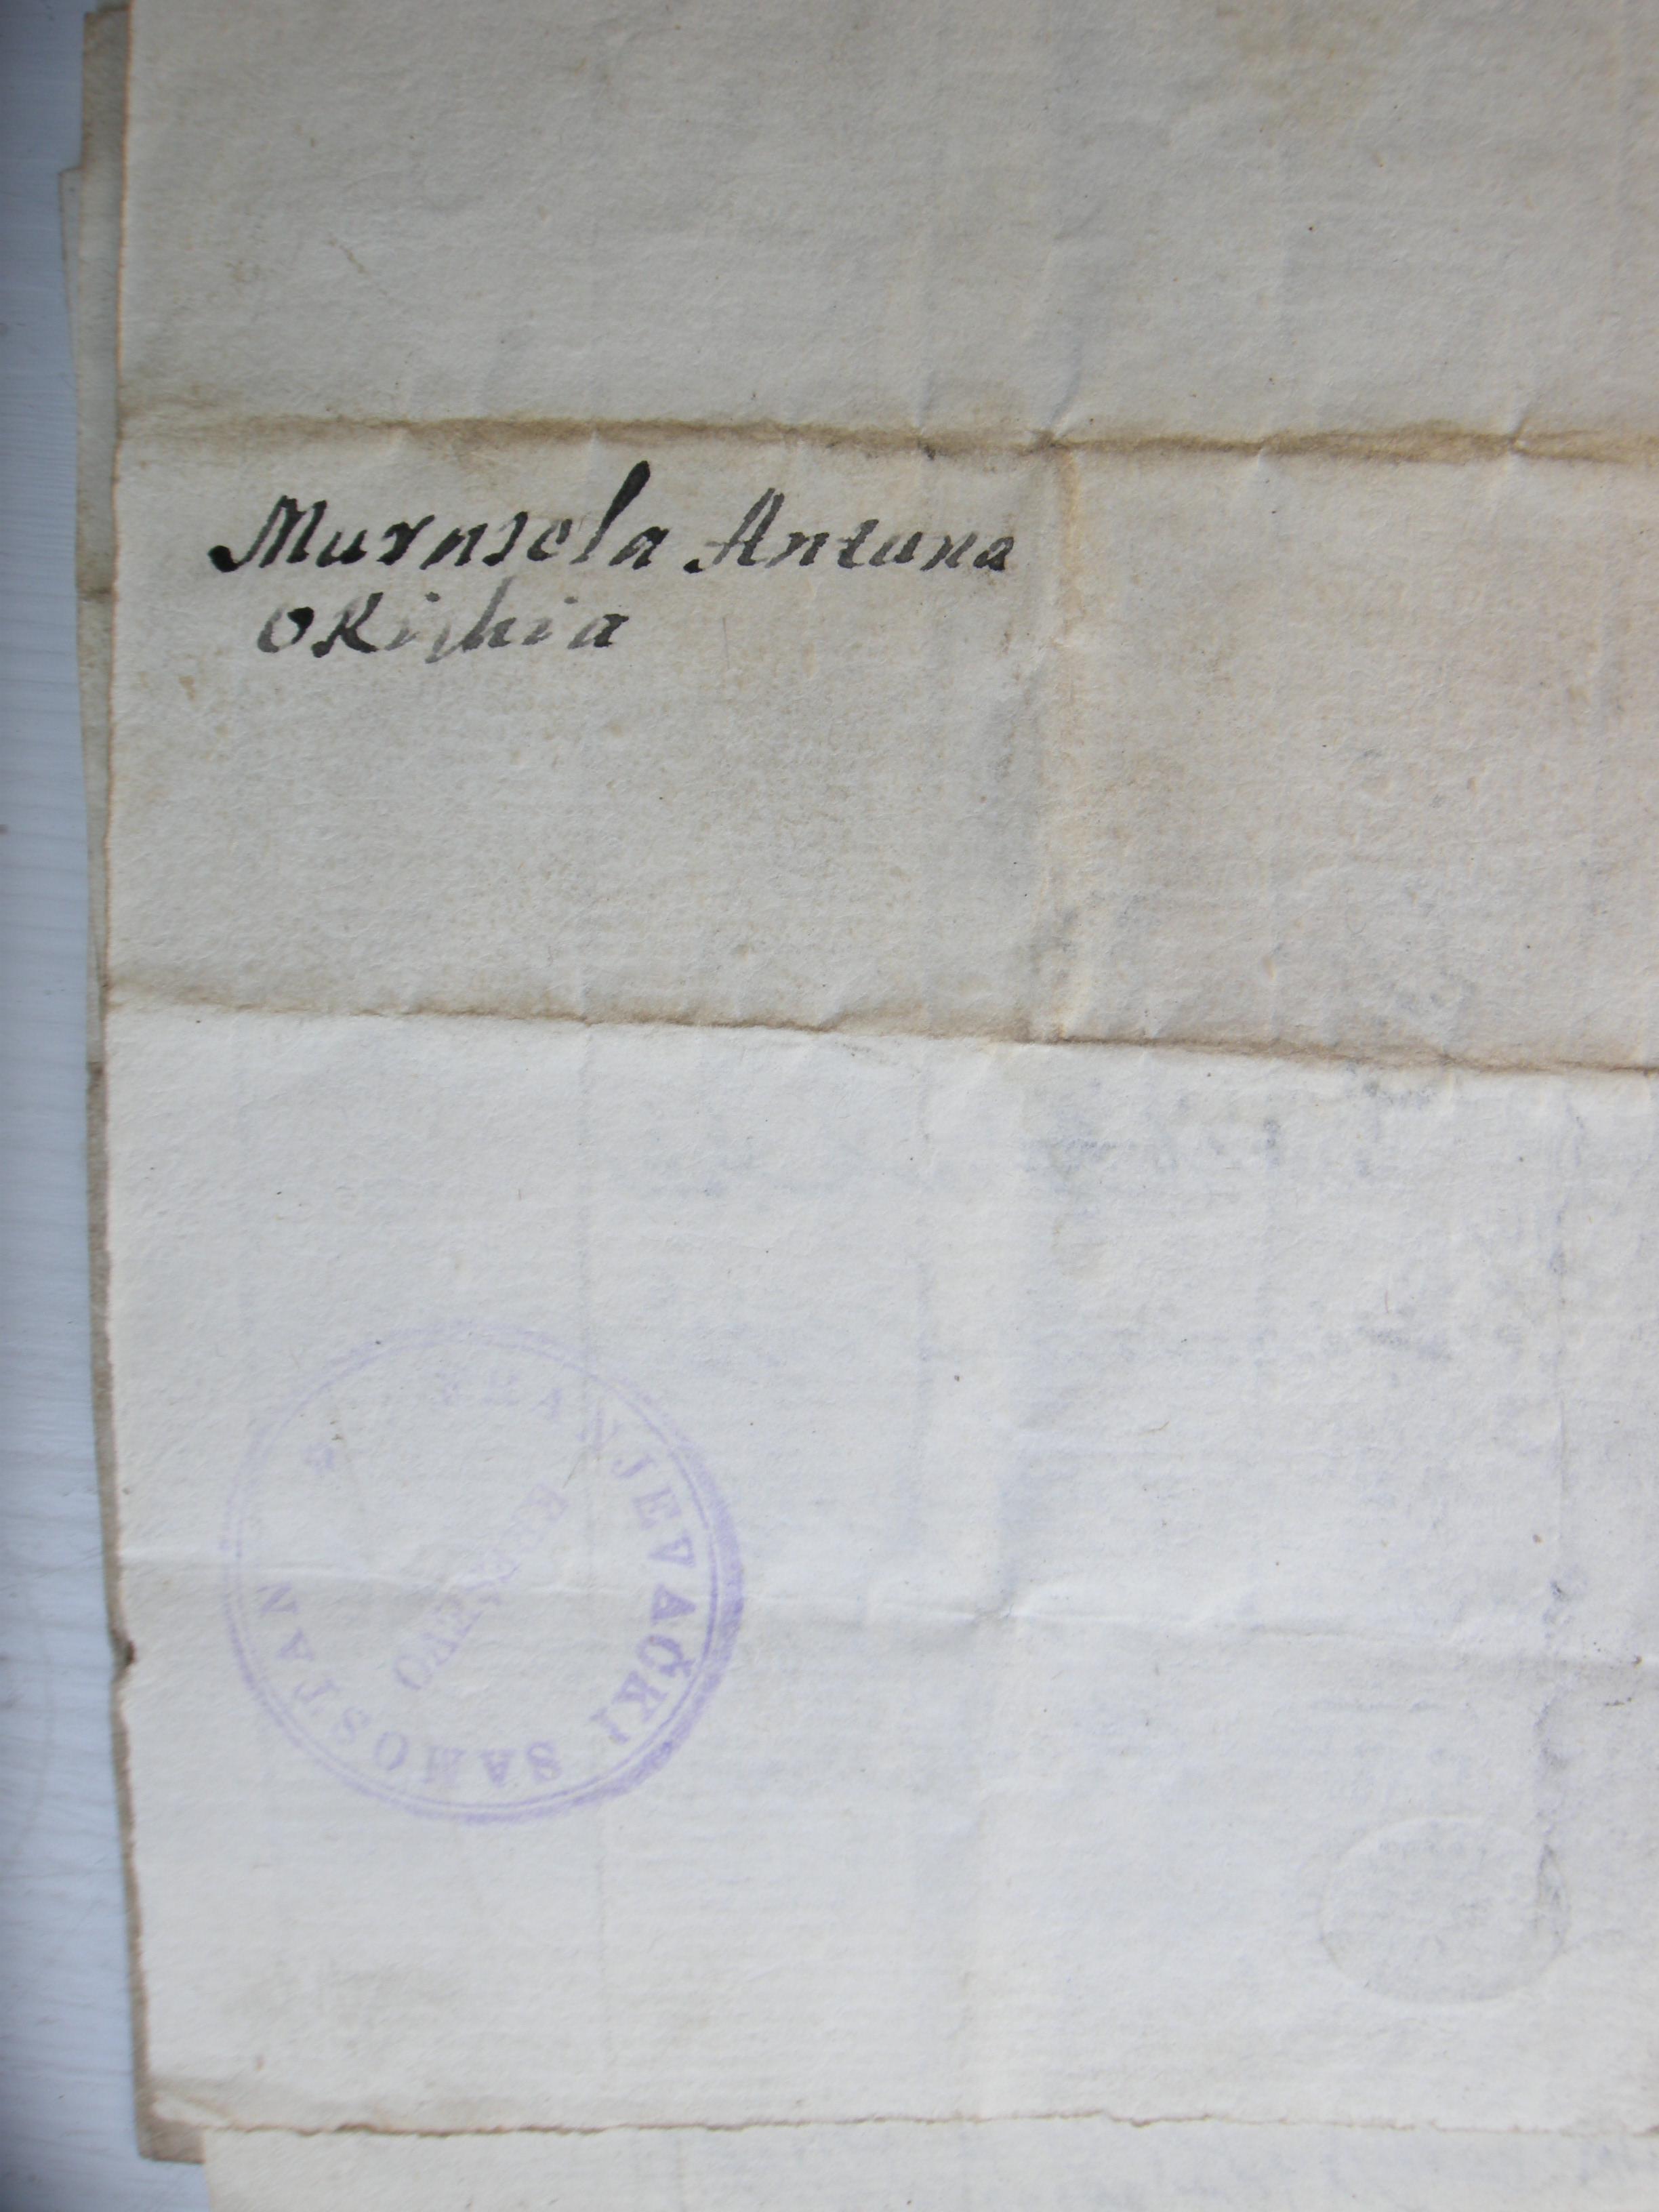 Murasela Antuna
okishia
FRANJEVAČKI SAMOSTAN
KREŠEVO